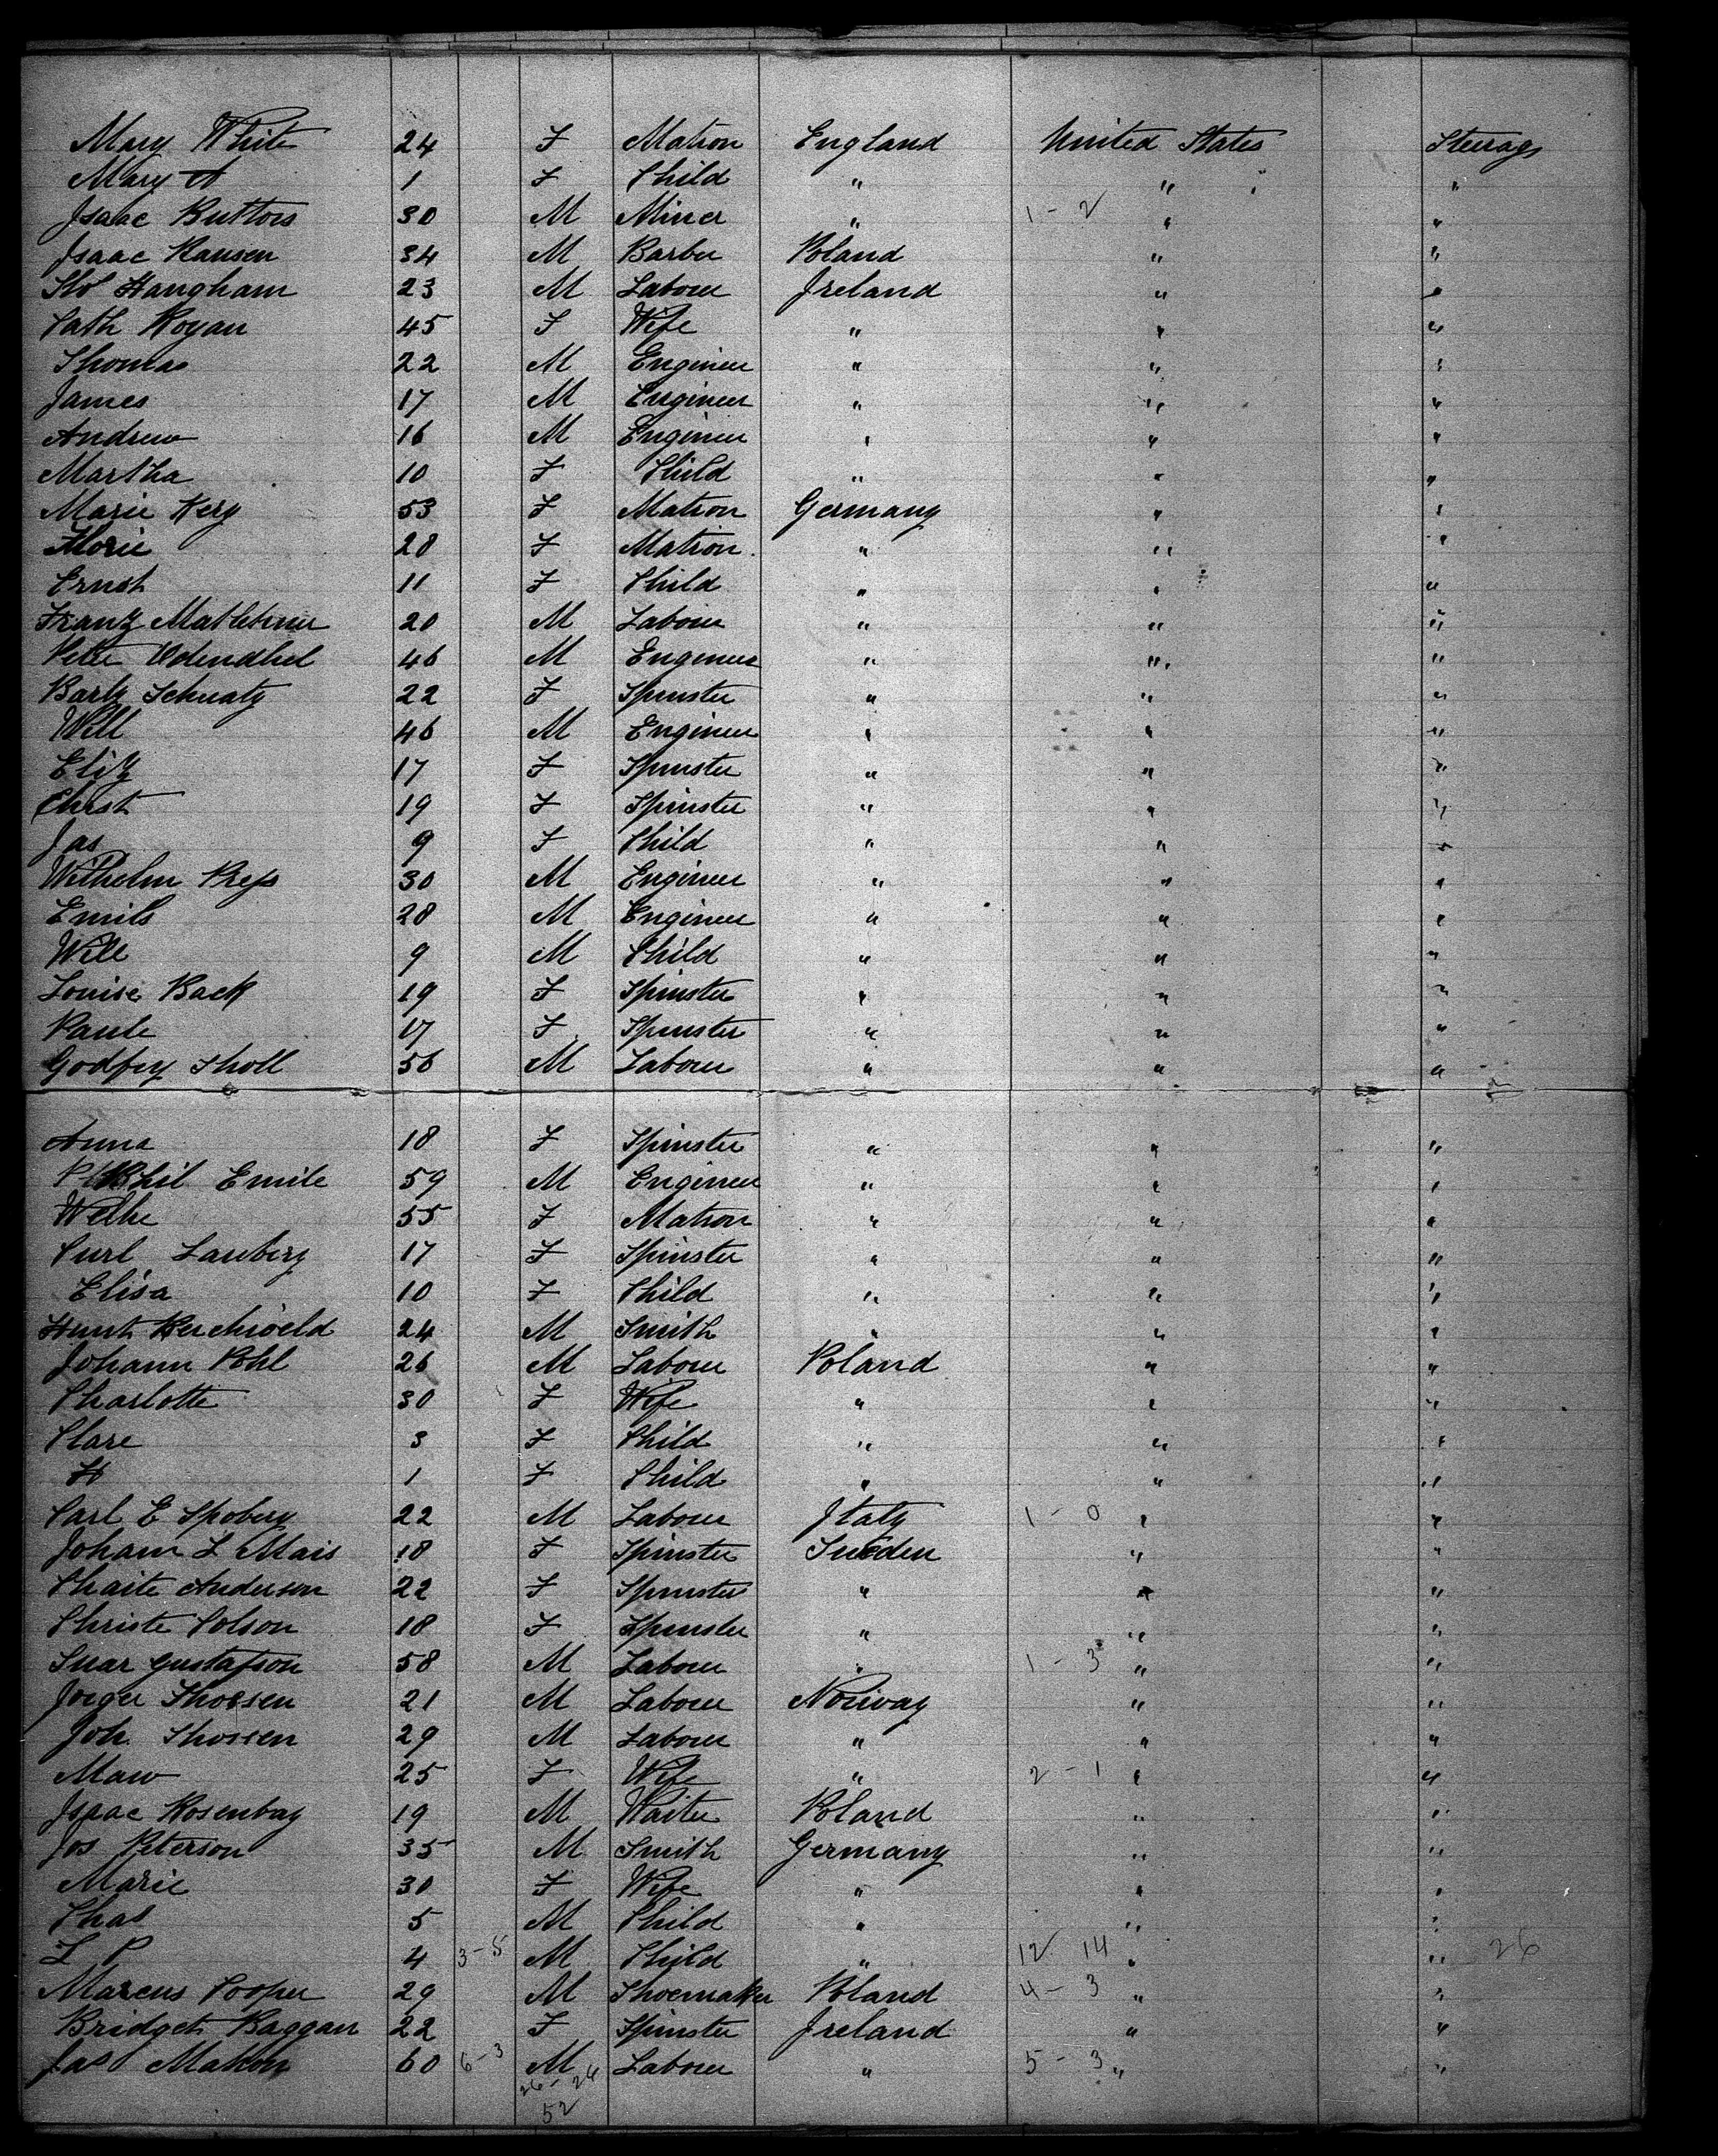 Mary White 24 F Matron England United States Steerage
Mary A 1 F Child " " "
Isaac Buttors 30 M Miner " 1 - 2 " "
Isaac Hansen 34 M Barber Poland " "
Haugham 23 M Labour Ireland " "
Cath Rogan 45 F Wife " " "
Thomas 22 M Engineer " " "
James 17 M Engineer " " "
Andrew 16 M Engineer " " "
Martha 10 F Child " " "
Marie Kerg 53 F Matron Germany " "
28 F Matron " " "
Ernst 11 F Child " " "
Franz 20 M Labour " " "
Peter Odendhel 46 M Engineer " " "
22 F Spinster " " "
Will 46 M Engineer " " "
Eliz 17 F Spinster " " "
Christ 19 F Spinster " " "
Jas 9 F Child " " "
Wilhelm 30 M Engineer " " "
Emils 28 M Engineer " " "
Will 9 M Child " " "
Louise Back 19 F Spinster " " "
Paule 17 F Spinster " " "
Godfrey Sholl 56 M Labour " " "
Anna 18 F Spinster " " "
Emile 59 M Engineer " " "
55 F Matron " " "
Lauberg 17 F Spinster " " "
Elisa 10 F Child " " "
24 M Smith " " "
Johann Pohl 26 M Labour Poland " "
Charlotte 30 F Wife " " "
Clare 3 F Child " " "
H 1 F Child " " "
Carl E Spoberg 22 M Labour Italy 1 - 0 " "
Johann L Mais 18 F Spinster Sweden " "
Anderson 22 F Spinster " " "
Christe Colson 18 F Spinster " " "
Gustafson 58 M Labour " 1 - 3 " "
Thorsen 21 M Labour Norway " "
Joh. Thorsen 29 M Labour " " "
25 F Wife " 2 - 1 " "
Isaac Rosenbag 19 M Waiter Poland " "
Jos Peterson 35 M Smith Germany " "
Marie 30 F Wife " " "
Chas 5 M Child " " "
L P 4 3-5 M Child " 12 14 " " 26
Marcus Cooper 29 M Shoemaker Poland 4 - 3 " "
Bridget Baggan 22 F Spinster Ireland " "
Jas Mahon 60 6-3 M Labour " 5 - 3 " "
26 - 26
52